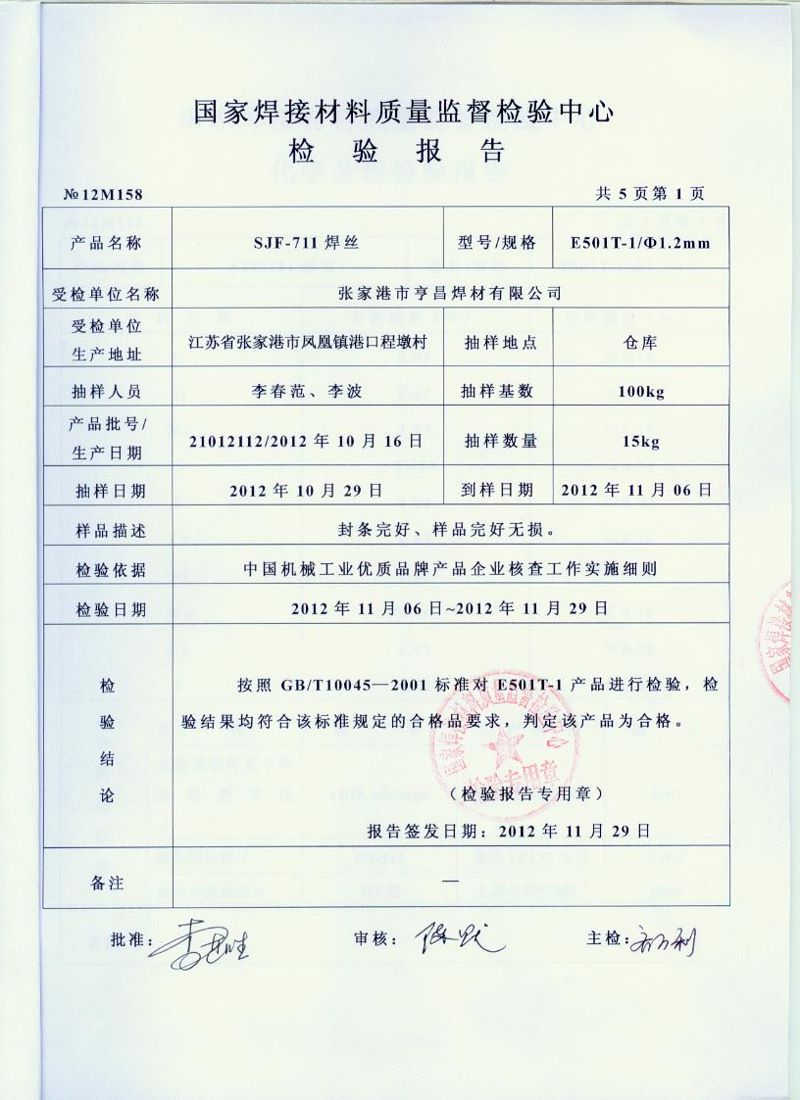 国家焊接材料质量监督检验中心
检验报告
№12M158 共5页第1页
产品名称 SJF-711焊丝 型号/规格 E501T-1/Φ1.2mm
受检单位名称 张家港市亨昌焊材有限公司
受检单位
生产地址 江苏省张家港市凤凰镇港口程墩村 抽样地点 仓库
抽样人员 李春范、李波 抽样基数 100kg
产品批号/
生产日期 21012112/2012年10月16日 抽样数量 15kg
抽样日期 2012年10月29日 到样日期 2012年11月06日
样品描述 封条完好、样品完好无损。
检验依据 中国机械工业优质品牌产品企业核查工作实施细则
检验日期 2012年11月06日~2012年11月29日
检验结论
按照GB/T10045—2001标准对E501T-1产品进行检验，检
验结果均符合该标准规定的合格品要求，判定该产品为合格。
（检验报告专用章）
报告签发日期：2012年11月29日
备注 —
批准： 审核： 主检：
检验专用章